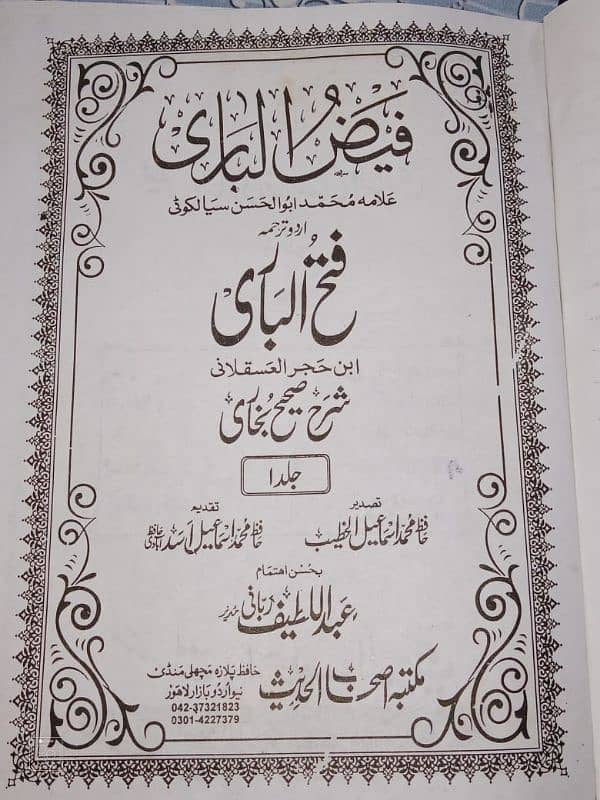 فیض الباری
علامہ محمد ابوالحسن سیالکوٹی
اردو ترجمہ
فتح الباری
ابن حجر العسقلانی
شرح صحیح بخاری
جلد ۱
تصدیر
حافظ محمد اسماعیل الخطیب
تقدیم
حافظ محمد اسماعیل اسد حافظ آبادی
بحسن اہتمام
عبداللطیف ربانی مدیر
مکتبہ اصحاب الحدیث
حافظ پلازہ مچھلی منڈی
نیو اردو بازار لاہور
042-37321823
0301-4227379
1